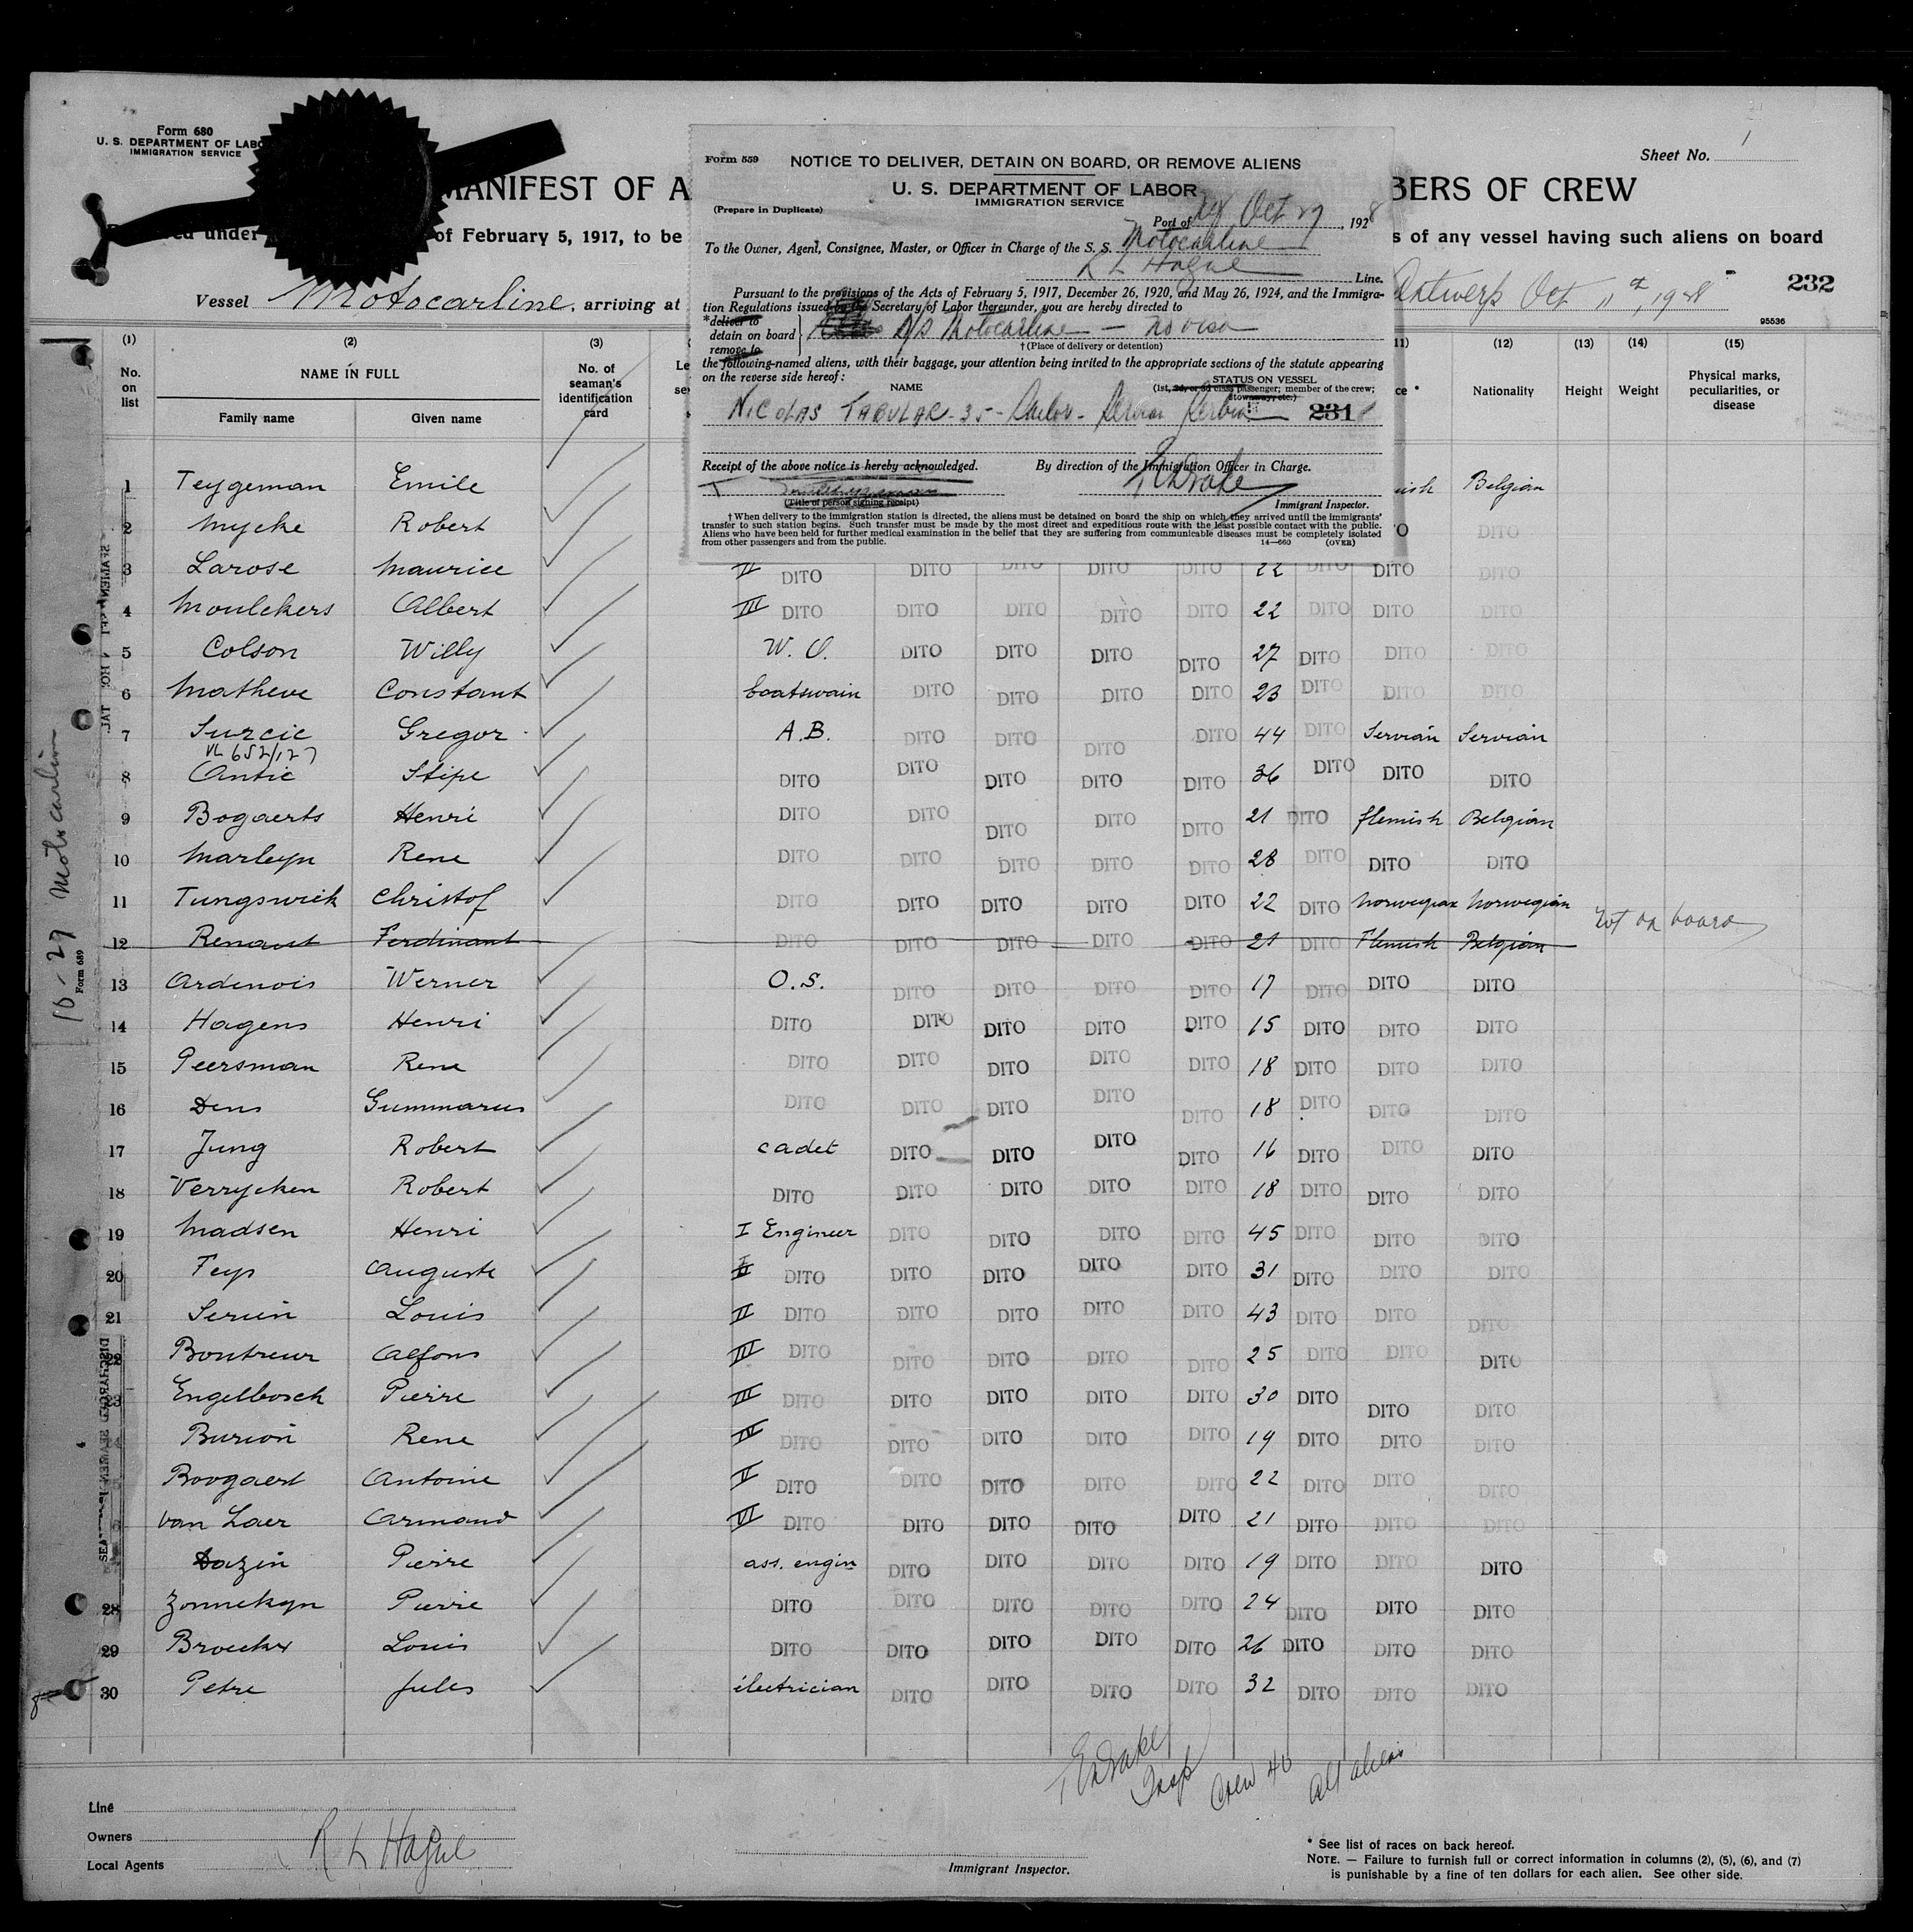 Form 680
U. S. DEPARTMENT OF LABO
IMMIGRATION SERVICE
Sheet No. 1
MANIFEST OF A
BERS OF CREW
under
of February 5, 1917, to be
s of any vessel having such aliens on board
Vessel Motocarline, arriving at
Antwerp Oct 11th, 1928
232
95536
Form 559
NOTICE TO DELIVER, DETAIN ON BOARD, OR REMOVE ALIENS
U. S. DEPARTMENT OF LABOR
IMMIGRATION SERVICE
(Prepare in Duplicate)
Port of NY Oct 29, 1928
To the Owner, Agent, Consignee, Master, or Officer in Charge of the S. S. Motocarline
R L Hague Line.
Pursuant to the provisions of the Acts of February 5, 1917, December 26, 1920, and May 26, 1924, and the Immigra-
tion Regulations issued by the Secretary of Labor thereunder, you are hereby directed to
*deliver to
detain on board
remove to
M/S Motocarline — no visa
†(Place of delivery or detention)
the following-named aliens, with their baggage, your attention being invited to the appropriate sections of the statute appearing
on the reverse side hereof:
NAME
STATUS ON VESSEL
(1st, 2d, or 3d class passenger; member of the crew;
stowaway, etc.)
NICOLAS TABULAR - 35 - Servian Serbia 231
Receipt of the above notice is hereby acknowledged.
By direction of the Immigration Officer in Charge.
(Title of person signing receipt)
Immigrant Inspector.
†When delivery to the immigration station is directed, the aliens must be detained on board the ship on which they arrived until the immigrants'
transfer to such station begins. Such transfer must be made by the most direct and expeditious route with the least possible contact with the public.
Aliens who have been held for further medical examination in the belief that they are suffering from communicable diseases must be completely isolated
from other passengers and from the public.
14—660 (OVER)
(1) (2) (3) 11) (12) (13) (14) (15)
No. on list
NAME IN FULL
Family name Given name
No. of seaman's identification card
Le
se
ce *
Nationality Height Weight
Physical marks, peculiarities, or disease
1 Teygeman Emile ish Belgian
2 Mycke Robert O DITO
3 Larose Maurice II DITO DITO DITO DITO DITO 22 DITO DITO DITO
4 Moulckers Albert III DITO DITO DITO DITO DITO 22 DITO DITO DITO
5 Colson Willy W. O. DITO DITO DITO DITO 27 DITO DITO DITO
6 Matheve Constant boatswain DITO DITO DITO DITO 23 DITO DITO DITO
7 Surcic Gregor A.B. DITO DITO DITO DITO 44 DITO Servian Servian
VL 652/127
8 Antic Stipe DITO DITO DITO DITO DITO 36 DITO DITO DITO
9 Bogaerts Henri DITO DITO DITO DITO DITO 21 DITO flemish Belgian
10 Marleyn Rene DITO DITO DITO DITO DITO 28 DITO DITO DITO
11 Tungswick Christof DITO DITO DITO DITO DITO 22 DITO Norwegian Norwegian
12 Renaut Ferdinant DITO DITO DITO DITO DITO 21 DITO Flemish Belgian Not on board
13 Ardenois Werner O.S. DITO DITO DITO DITO 17 DITO DITO DITO
14 Hagens Henri DITO DITO DITO DITO DITO 15 DITO DITO DITO
15 Peersman Rene DITO DITO DITO DITO DITO 18 DITO DITO DITO
16 Dens Gummarus DITO DITO DITO DITO DITO 18 DITO DITO DITO
17 Jung Robert cadet DITO DITO DITO DITO 16 DITO DITO DITO
18 Verrycken Robert DITO DITO DITO DITO DITO 18 DITO DITO DITO
19 Madsen Henri I Engineer DITO DITO DITO DITO 45 DITO DITO DITO
20 Feys Auguste DITO DITO DITO DITO DITO 31 DITO DITO DITO
21 Seruin Louis II DITO DITO DITO DITO DITO 43 DITO DITO DITO
22 Bontreur Alfons III DITO DITO DITO DITO DITO 25 DITO DITO DITO
23 Engelbosch Pierre III DITO DITO DITO DITO DITO 30 DITO DITO DITO
4 Burion Rene IV DITO DITO DITO DITO DITO 19 DITO DITO DITO
5 Boogaert Antoine V DITO DITO DITO DITO DITO 22 DITO DITO DITO
6 van Laer Armand VI DITO DITO DITO DITO DITO 21 DITO DITO DITO
Dazin Pierre ass. engin DITO DITO DITO DITO 19 DITO DITO DITO
28 Zonnekyn Pierre DITO DITO DITO DITO DITO 24 DITO DITO DITO
29 Broeckx Louis DITO DITO DITO DITO DITO 26 DITO DITO DITO
30 Petre Jules electrician DITO DITO DITO DITO 32 DITO DITO DITO
10-29 Motocarline
Form 689
Insp
Crew 40
All aliens
Line
Owners
Local Agents
R L Hague
Immigrant Inspector.
* See list of races on back hereof.
NOTE. — Failure to furnish full or correct information in columns (2), (5), (6), and (7)
is punishable by a fine of ten dollars for each alien. See other side.